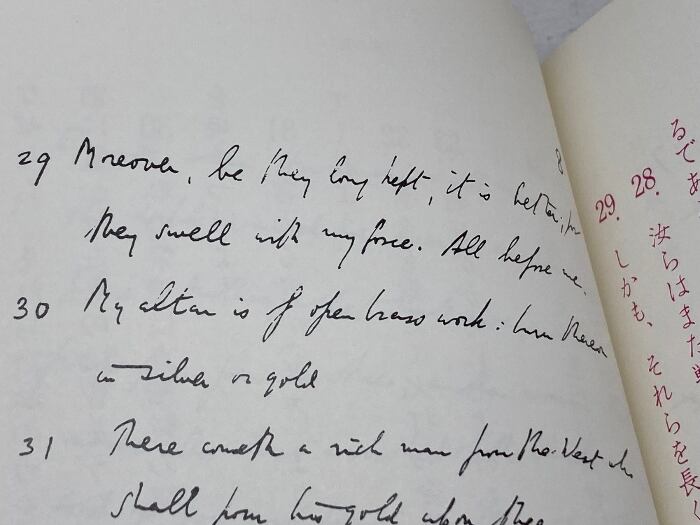 29 Moreover, be they long kept, it is better; for
they swell with my force. All before me.
30 My altar is of open brass work: burn thereon
in silver or gold
31 There cometh a rich man from the West who
shall pour his gold upon thee
28. 汝らはまた
29. しかも、それらを長
るであ